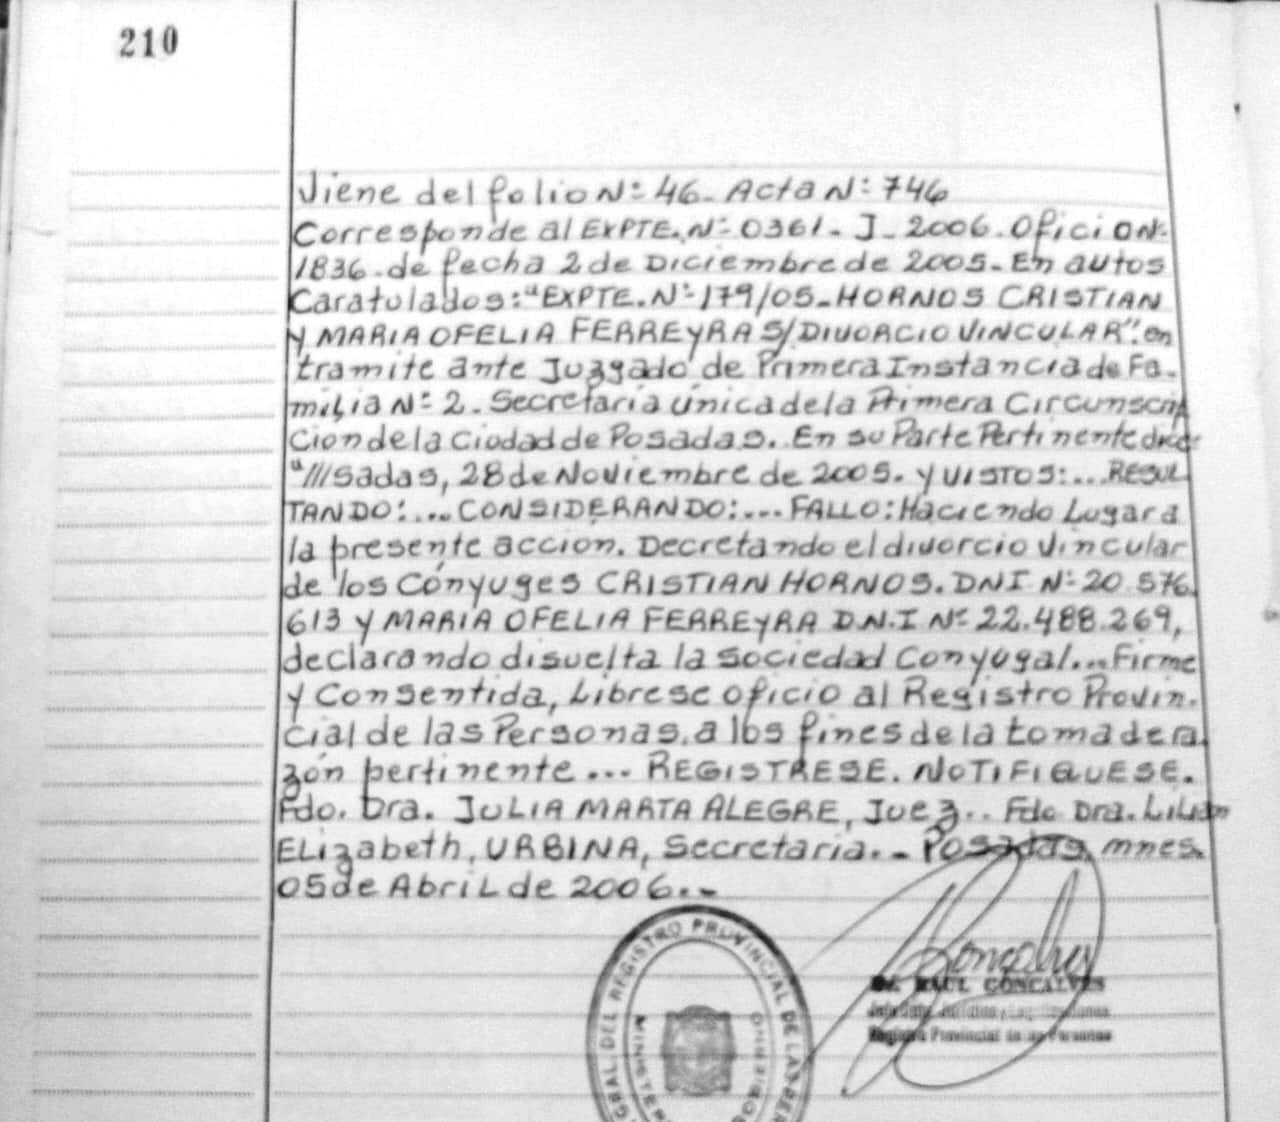 210
Viene del folio Nº 46. Acta Nº 746
Corresponde al EXPTE. Nº 0361. J. 2006. Oficio Nº
1836. de fecha 2 de Diciembre de 2005. En autos
Caratulados: "EXPTE. Nº 179/05. HORNOS CRISTIAN
Y MARIA OFELIA FERREYRA S/DIVORCIO VINCULAR". en
tramite ante Juzgado de Primera Instancia de Fa-
milia Nº 2. Secretaria única de la Primera Circunscrip
Cion de la Ciudad de Posadas. En su Parte Pertinente dice:
"///Sadas, 28 de Noviembre de 2005. Y VISTOS:...RESUL
TANDO:... CONSIDERANDO:... FALLO: Haciendo Lugar a
la presente accion. Decretando el divorcio vincular
de los Cónyuges CRISTIAN HORNOS. DNI Nº 20.576.
613 Y MARIA OFELIA FERREYRA D.N.I Nº 22.488.269,
declarando disuelta la Sociedad Conyugal... Firme
y Consentida, Librese oficio al Registro Provin-
cial de las Personas, a los fines de la toma de ra
zón pertinente... REGISTRESE. NOTIFIQUESE.
Fdo. Dra. JULIA MARTA ALEGRE, Juez.. Fdo Dra. Lilian
Elizabeth, URBINA, Secretaria.- Posadas, mnes.
05 de Abril de 2006.-
GRAL. DEL REGISTRO PROVINCIAL DE LAS PER
Goncalves
Dr. RAUL GONCALVES
Registro Provincial de las Personas